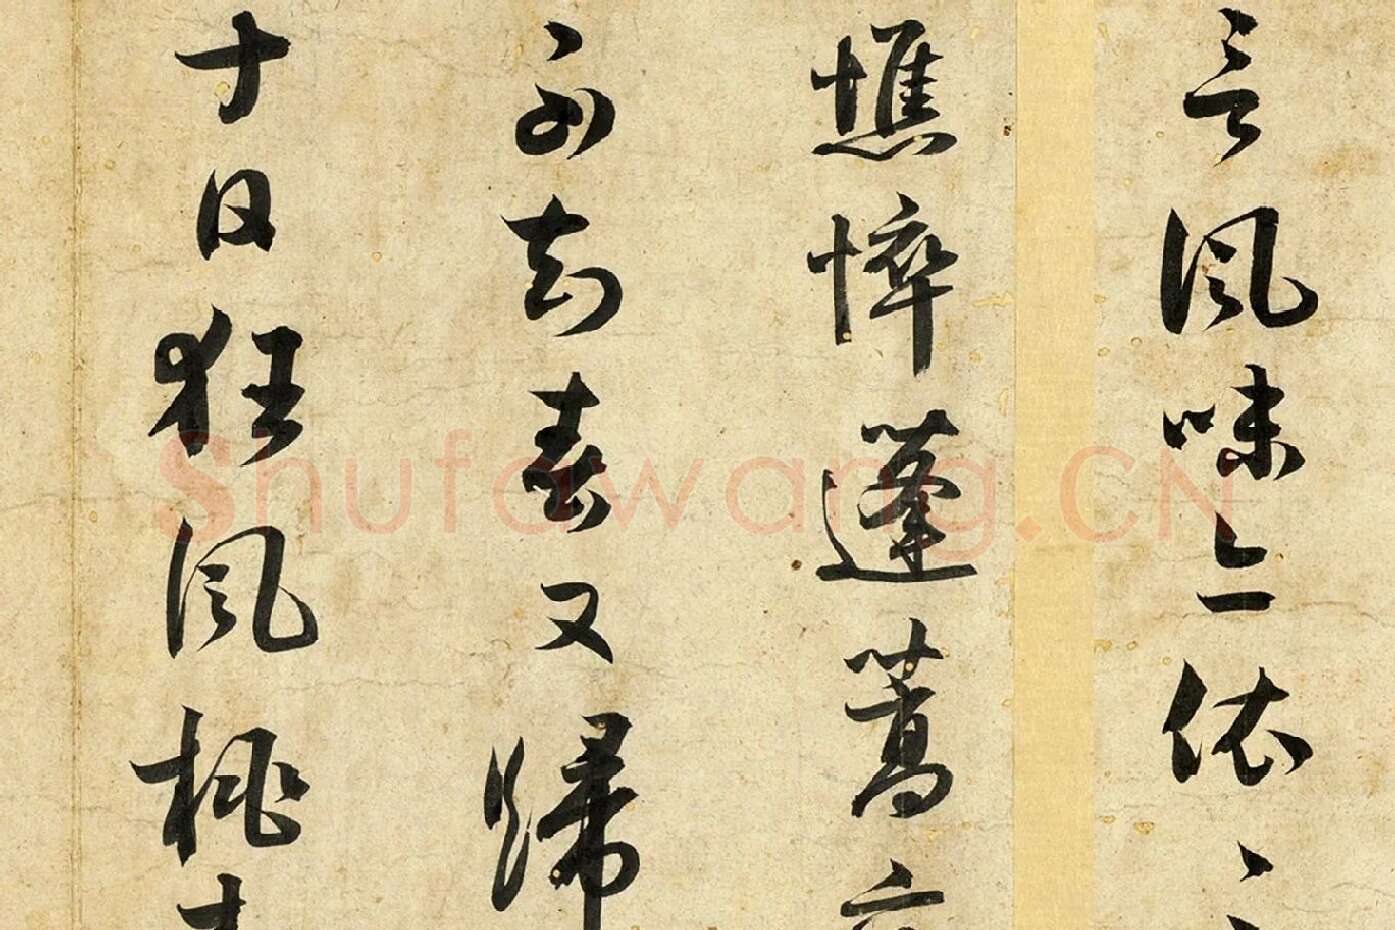 言風味亦依
憔悴蓬蒿
不知春又歸
十日狂風桃
Shufawang.CN